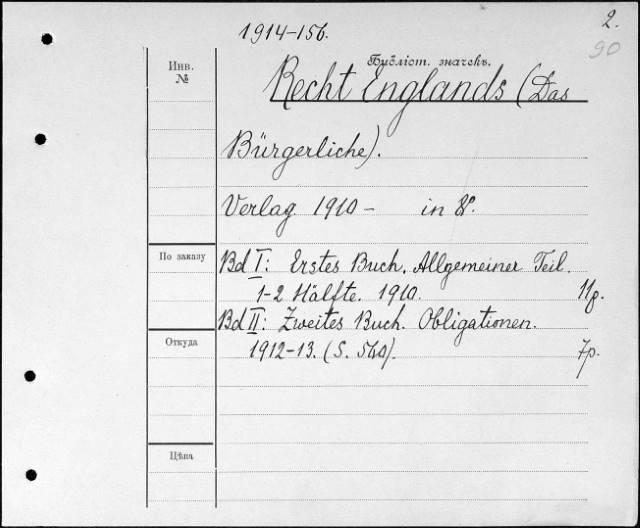 1914-156.
2.
90
Инв.
№
Библіот. значекъ.
Recht Englands (Das
Bürgerliche).
Verlag 1910 - in 8º.
По заказу
Bd I: Erstes Buch. Allgemeiner Teil.
1-2 Hälfte. 1910. 11p.
Bd II: Zweites Buch. Obligationen.
Откуда
1912-13. (S. 540). 7p.
Цѣна